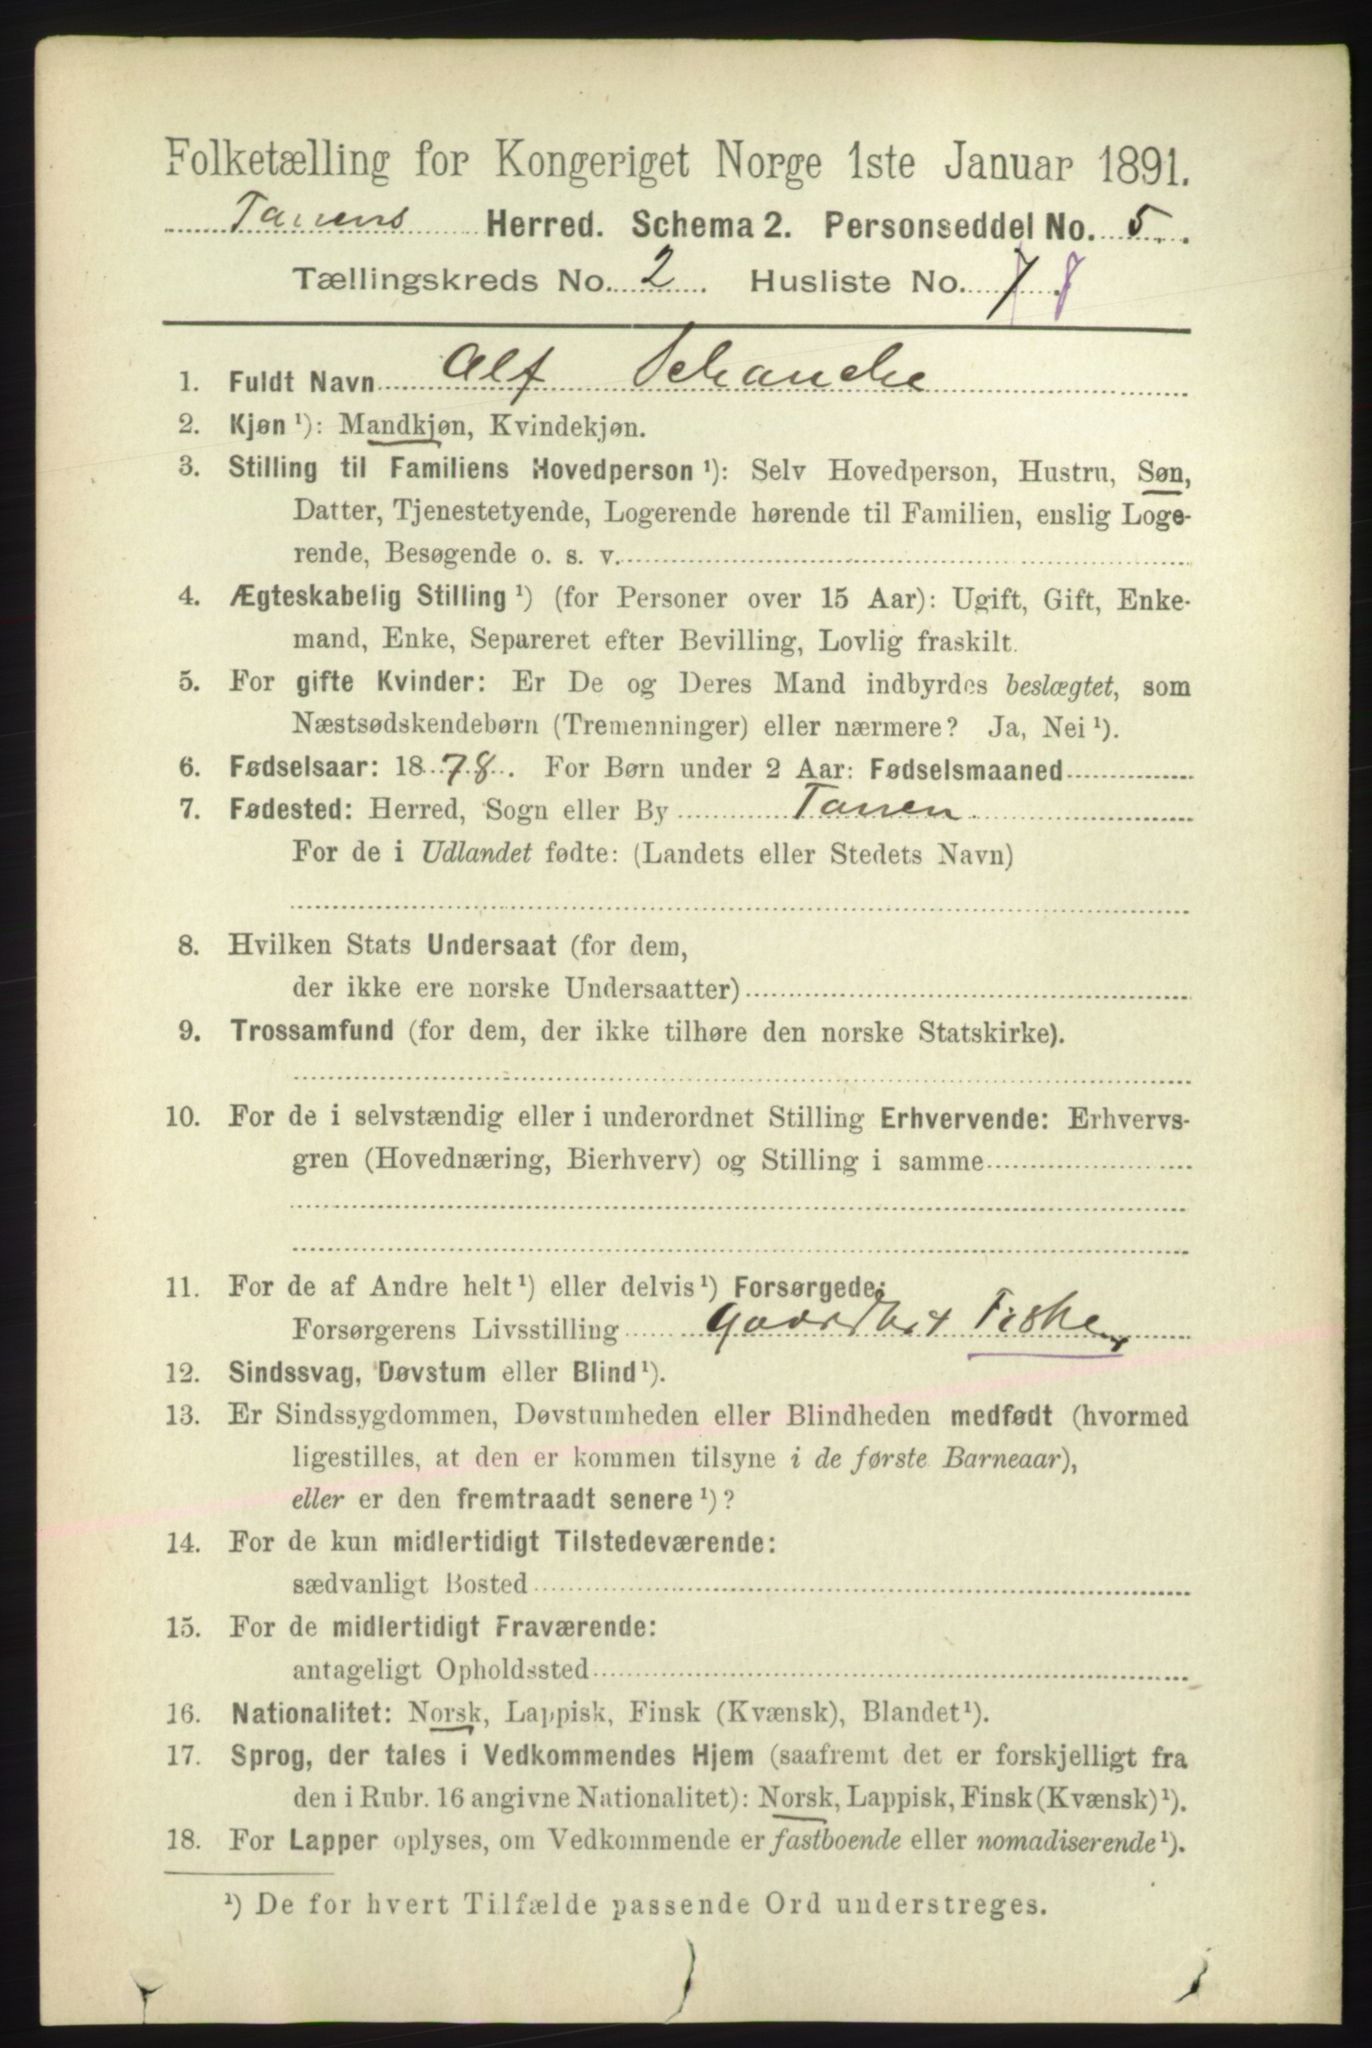 Folketælling for Kongeriget Norge 1ste Januar 1891.
Tanens Herred. Schema 2. Personseddel No. 5.
Tællingskreds No. 2. Husliste No. 7 8
1. Fuldt Navn Alf Schanche
2. Kjøn ¹): Mandkjøn, Kvindekjøn.
3. Stilling til Familiens Hovedperson ¹): Selv Hovedperson, Hustru, Søn,
Datter, Tjenestetyende, Logerende hørende til Familien, enslig Loge-
rende, Besøgende o. s. v.
4. Ægteskabelig Stilling ¹) (for Personer over 15 Aar): Ugift, Gift, Enke-
mand, Enke, Separeret efter Bevilling, Lovlig fraskilt.
5. For gifte Kvinder: Er De og Deres Mand indbyrdes beslægtet, som
Næstsødskendebørn (Tremenninger) eller nærmere? Ja, Nei ¹).
6. Fødselsaar: 1878. For Børn under 2 Aar: Fødselsmaaned
7. Fødested: Herred, Sogn eller By Tanen
For de i Udlandet fødte: (Landets eller Stedets Navn)
8. Hvilken Stats Undersaat (for dem,
der ikke ere norske Undersaatter)
9. Trossamfund (for dem, der ikke tilhøre den norske Statskirke).
10. For de i selvstændig eller i underordnet Stilling Erhvervende: Erhvervs-
gren (Hovednæring, Bierhverv) og Stilling i samme
11. For de af Andre helt ¹) eller delvis ¹) Forsørgede:
Forsørgerens Livsstilling Gaardbr. + Fisker
12. Sindssvag, Døvstum eller Blind ¹).
13. Er Sindssygdommen, Døvstumheden eller Blindheden medfødt (hvormed
ligestilles, at den er kommen tilsyne i de første Barneaar),
eller er den fremtraadt senere ¹)?
14. For de kun midlertidigt Tilstedeværende:
sædvanligt Bosted
15. For de midlertidigt Fraværende:
antageligt Opholdssted
16. Nationalitet: Norsk, Lappisk, Finsk (Kvænsk), Blandet ¹).
17. Sprog, der tales i Vedkommendes Hjem (saafremt det er forskjelligt fra
den i Rubr. 16 angivne Nationalitet): Norsk, Lappisk, Finsk (Kvænsk) ¹).
18. For Lapper oplyses, om Vedkommende er fastboende eller nomadiserende ¹).
¹) De for hvert Tilfælde passende Ord understreges.